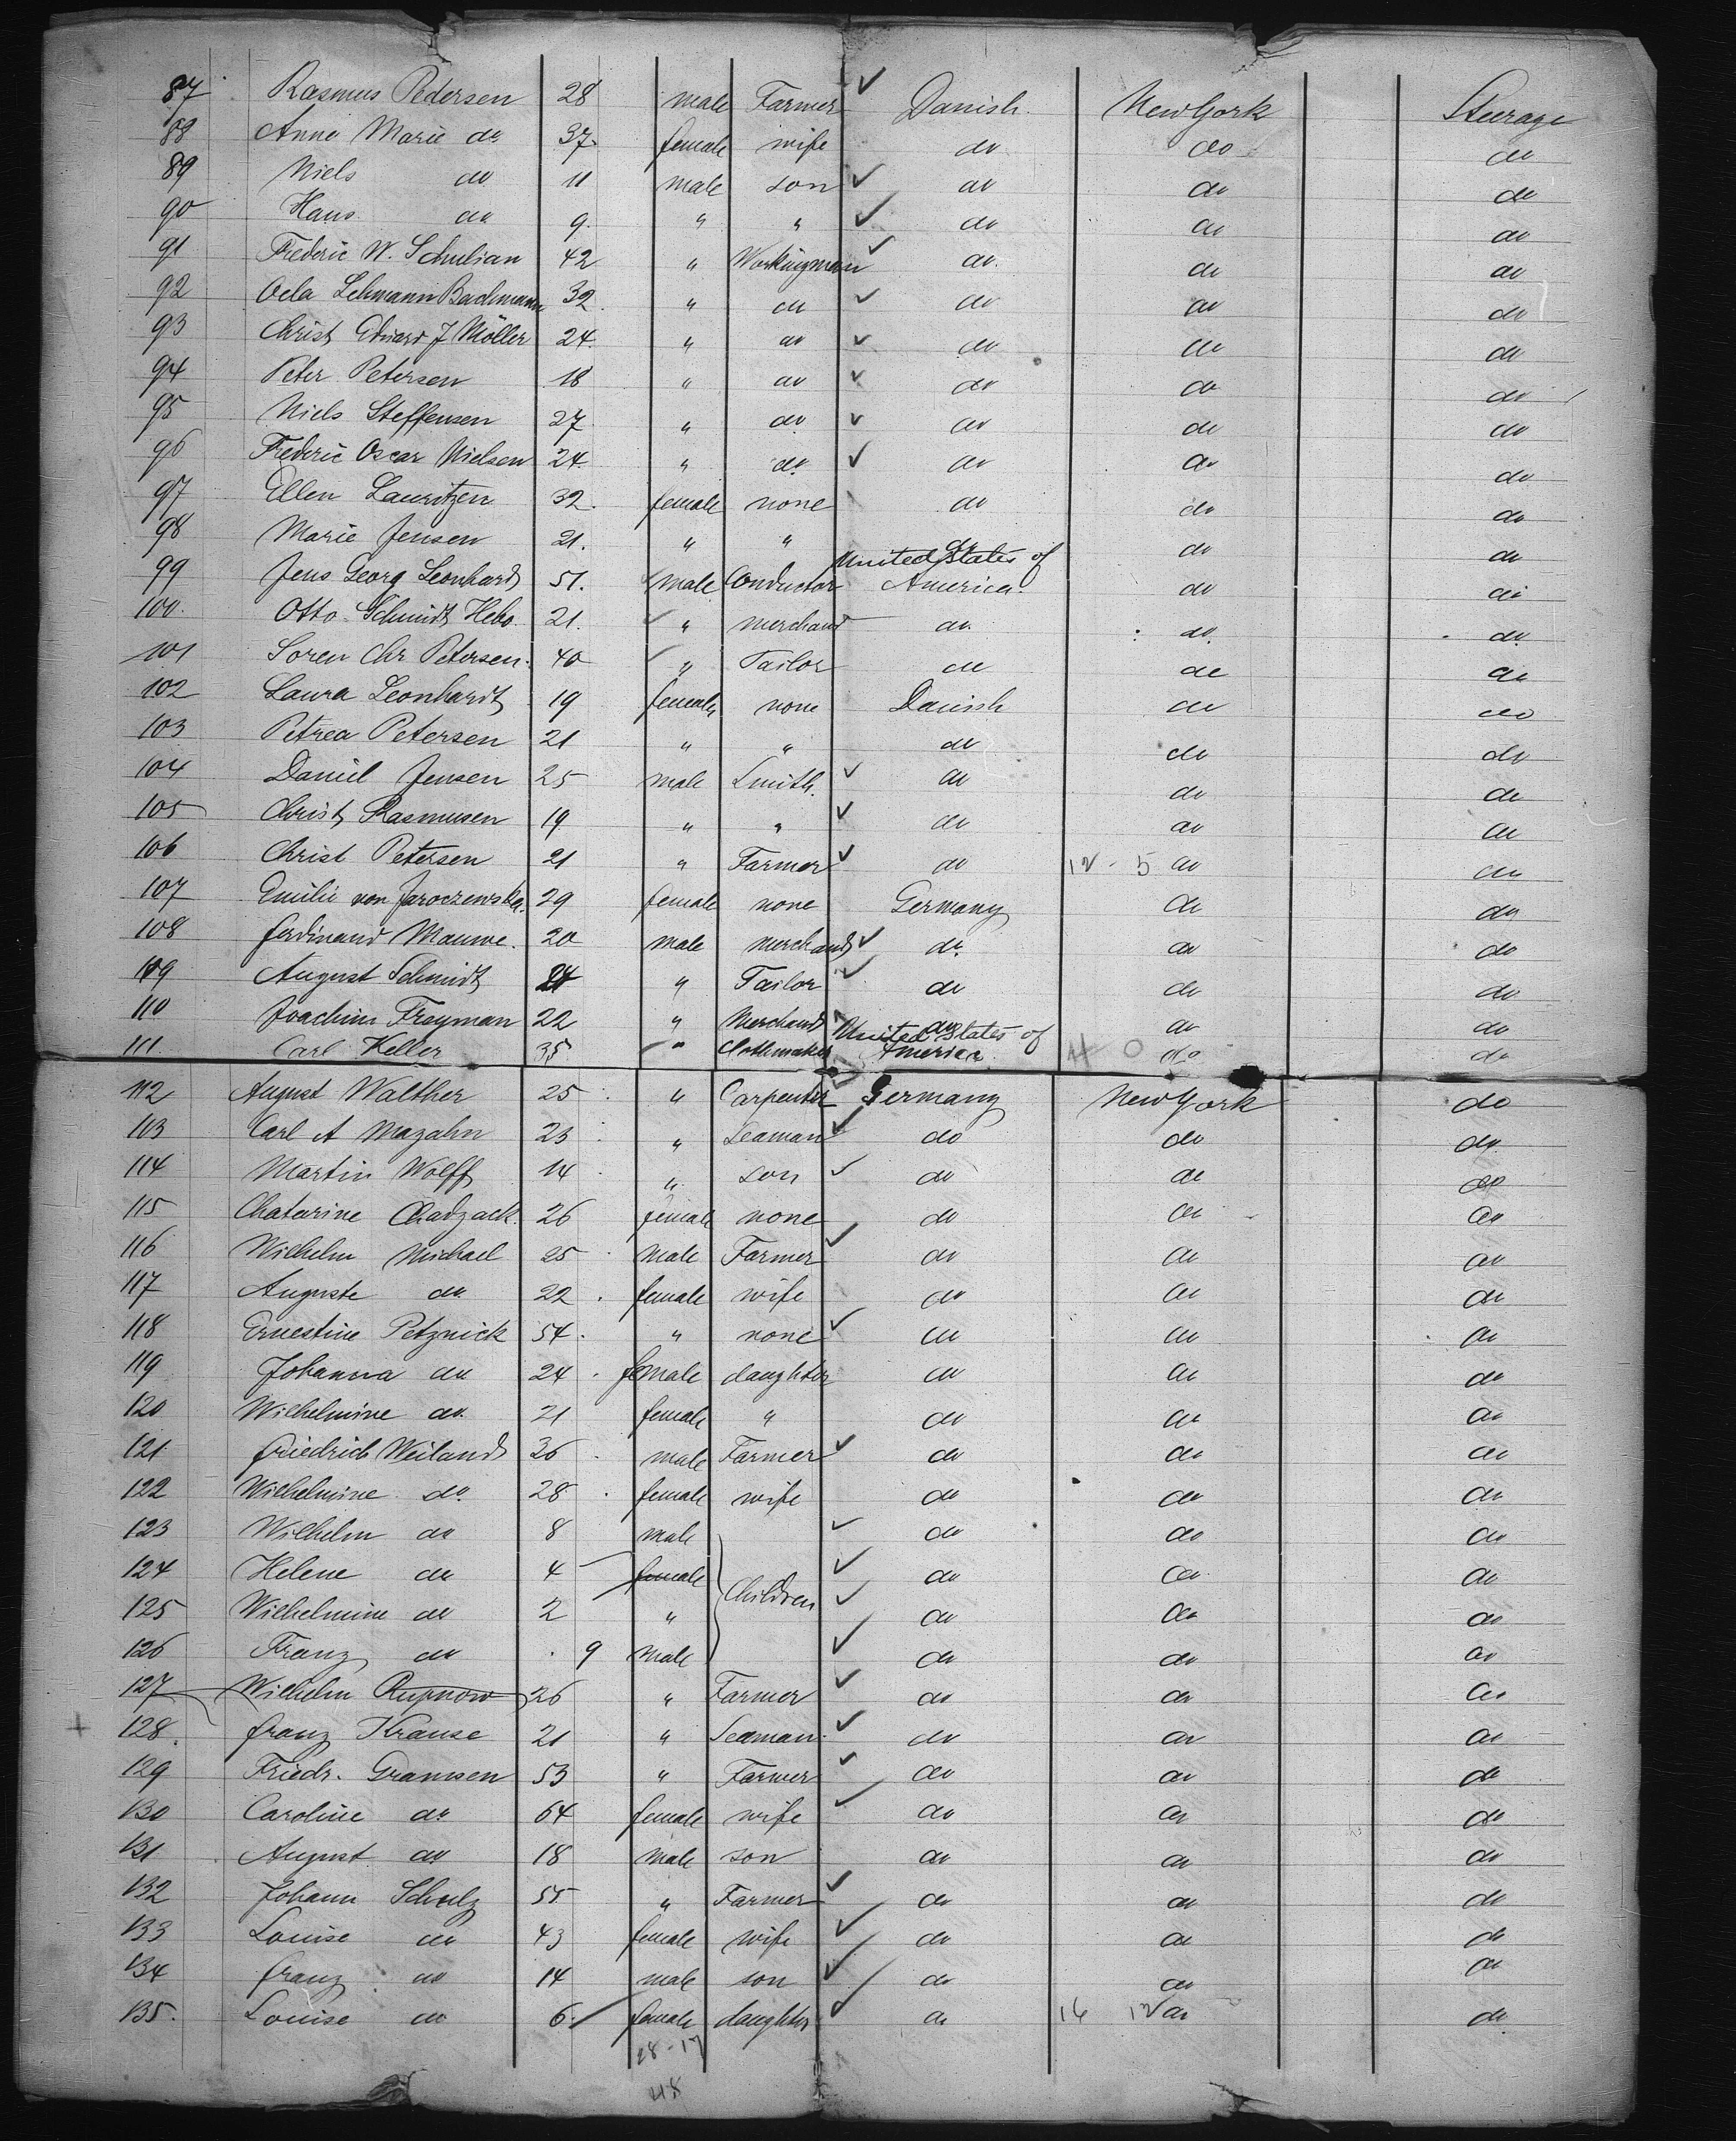 87 Rasmus Pedersen 28 male Farmer Danish New York Steerage
88 Anne Marie do 37. female wife do do do
89 Niels do 11 male son do do do
90 Hans do 9. " " do do do
91 Frederic W. Schulian 42 " Workingman do. do do
92 Lehmann Bachmann 32. " do do do do
93 Christ Eduard J Möller 24. " do do do do
94 Peter Petersen 18 " do do do do
95 Niels Steffensen 27 " do do do do
96 Frederic Oscar Nielsen 24. " do. do do do
97 Ellen Lauritzen 32. female none do do do
98 Marie Jensen 21. " " do do do
99 Jens Georg Leonhardt 51. male Conductor United States of America. do do
100. Otto Schmidt Hebo. 21. " merchant do. do. do.
101 Soren Chr Petersen. 40 " Tailor do do do
102 Laura Leonhardt 19 female none Danish do do
103 Petrea Petersen 21 " " do do do
104 Daniel Jensen 25 male Smith. do do do
105 Christ Rasmusen 19 " " do do do
106 Christ Petersen 21 " Farmer do 12 - 5 do do
107 Emilie von Jaroczewska. 29 female none Germany do do
108 Ferdinand Mauwe. 20 male merchandt do. do do
109 August Schmidt 24 " Tailor do do do
110 Joachim Freyman 22 " Merchandt do do do
111. Carl Keller 35 " Clothmaker United States of America 4 0 do do
112 August Walther 25 " Carpenter Germany New York do
113 Carl A Mazahn 23 " Seaman do do do.
114 Martin Wolff 14 " son do do do
115 Chatarine Chadzack. 26 female none do do do
116 Wilhelm Michael 25 male Farmer do do do
117 Auguste do. 22. female wife do do do
118 Ernestine Petznick 54. " none do do do
119 Johanna do 24. female daughter do do do
120 Wilhelmine do. 21 female " do do do
121 Friedrich Weilandt 36 male Farmer do do do
122 Wilhelmine do. 28. female wife do do do
123 Wilhelm do 8 male do do do
124 Helene do 4 female Children do do do
125 Wilhelmine do 2 " do do do
126 Franz do 9 male do do do
127 Wilhelm Rupnow 26 " Farmer do do do
128. Franz Krause 21 " Seaman. do do do
129 Friedr. Gramsen 53 " Farmer do do do
130 Caroline do 64 female wife do do do
131 August do 18 male son do do do
132 Johann Schulz 55 " Farmer do do do
133 Louise do 43 female wife do do do
134 Franz do 14 male son do do do
135. Louise do 6. female daughter do 16 12 do do
28-17
48